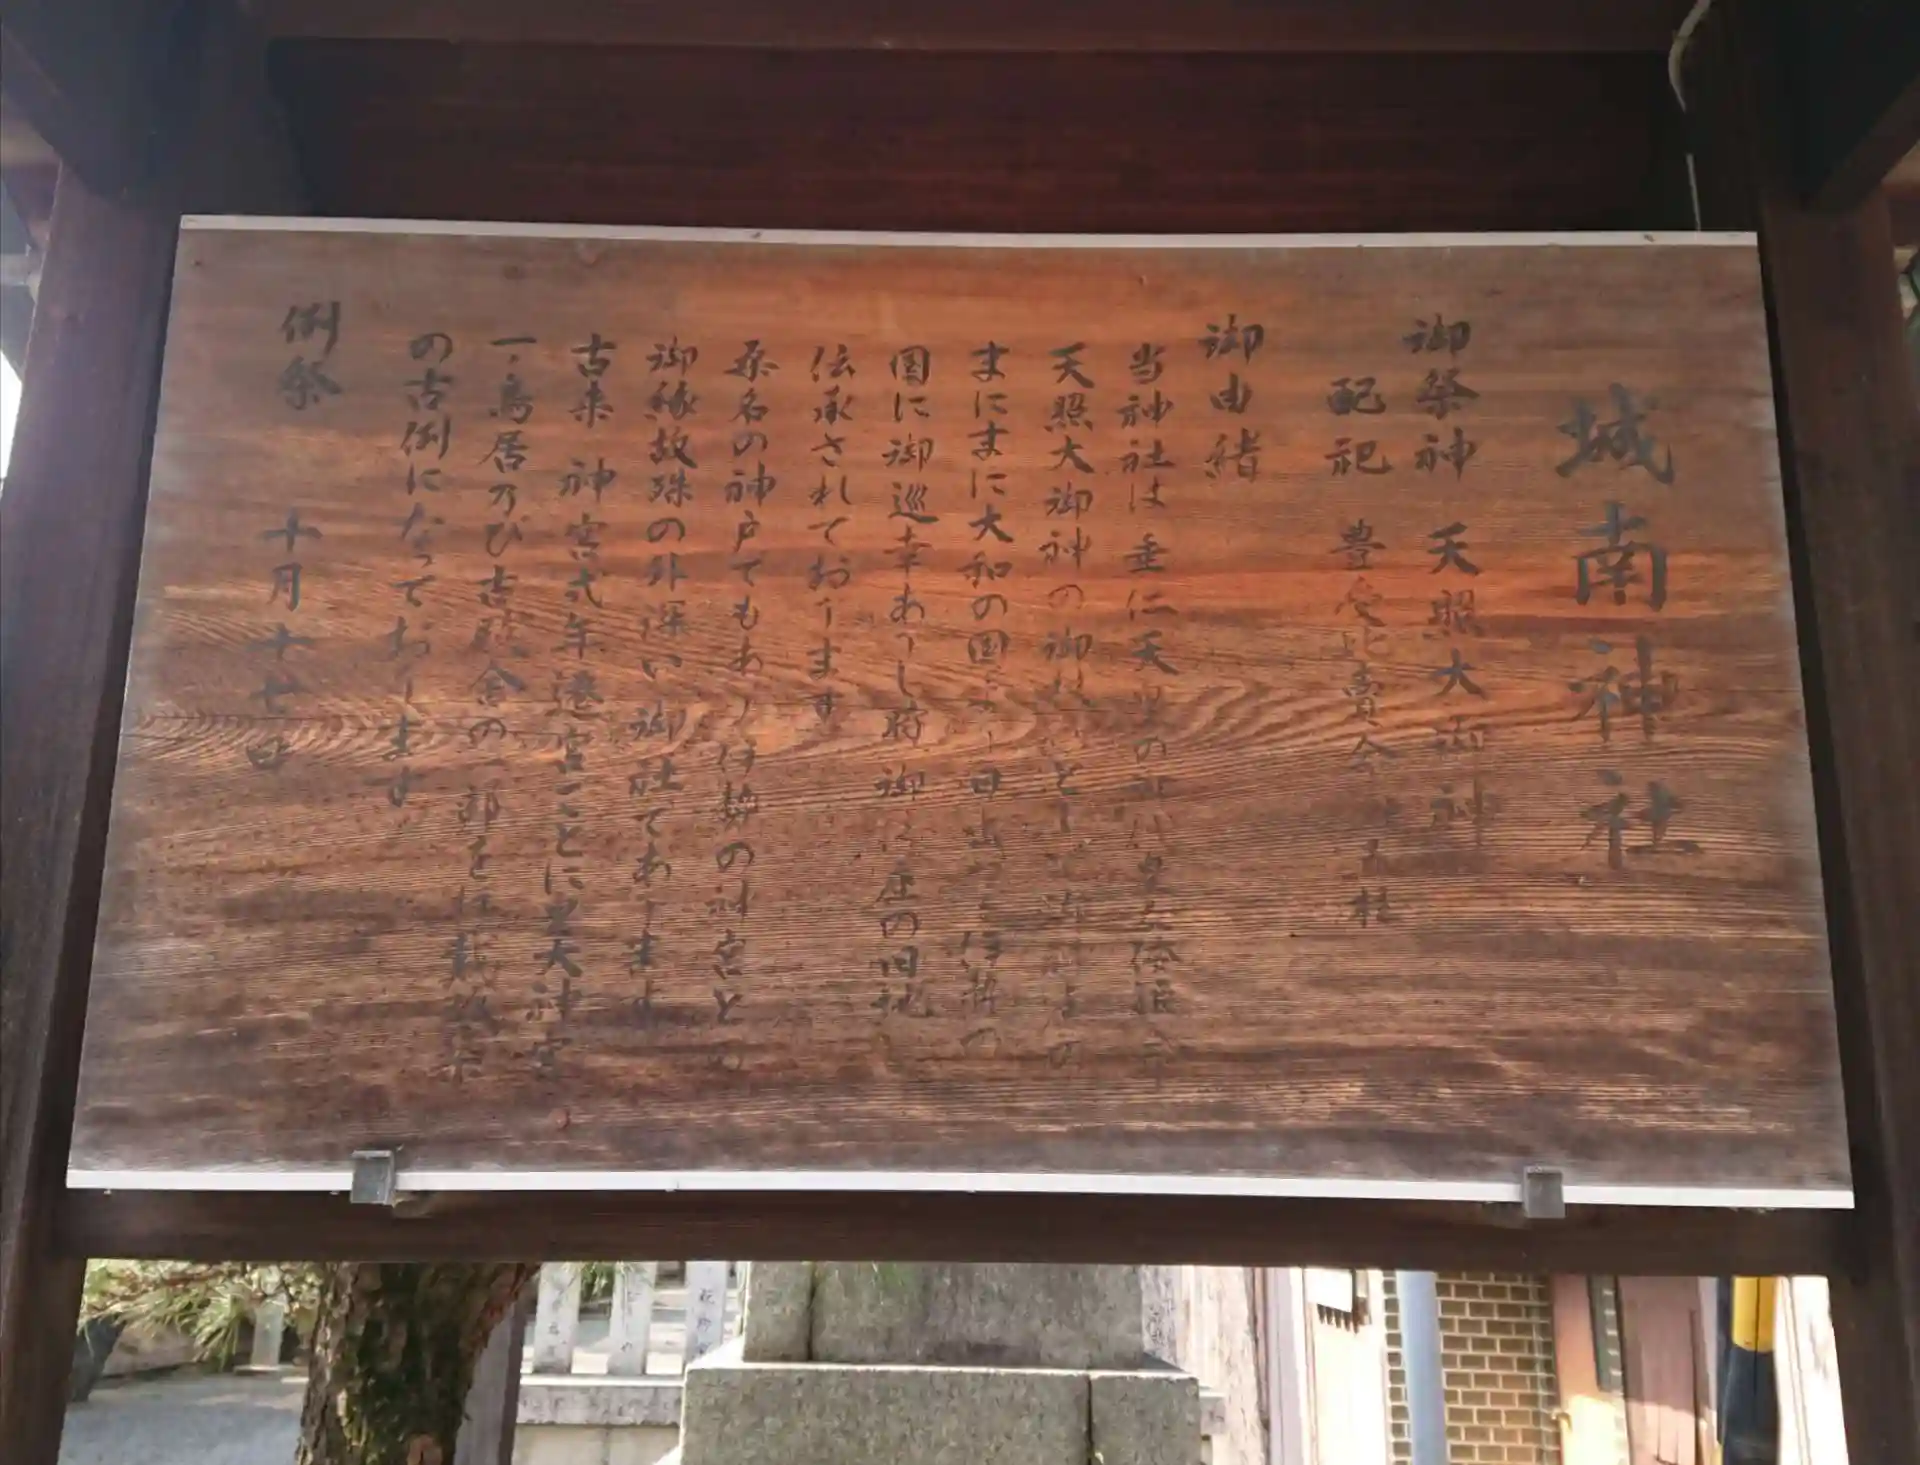 城南神社
御祭神 天照大御神
配祀 豊受比賣命 五社
御由緒
当神社は垂仁天皇の 皇女倭姫命
天照大御神の御杖 として御神 の
まにまに大和の国より 伊勢の
国に御巡幸ありし時 御 座の旧地
伝承されております
桑名の神戸でもあり伊勢の神宮との
御縁故殊の外深い御社であります
古来 神宮式年遷宮ごとに皇大神宮
一ノ鳥居及び古殿舎の一部を
の古例になっております
例祭 十月十七日